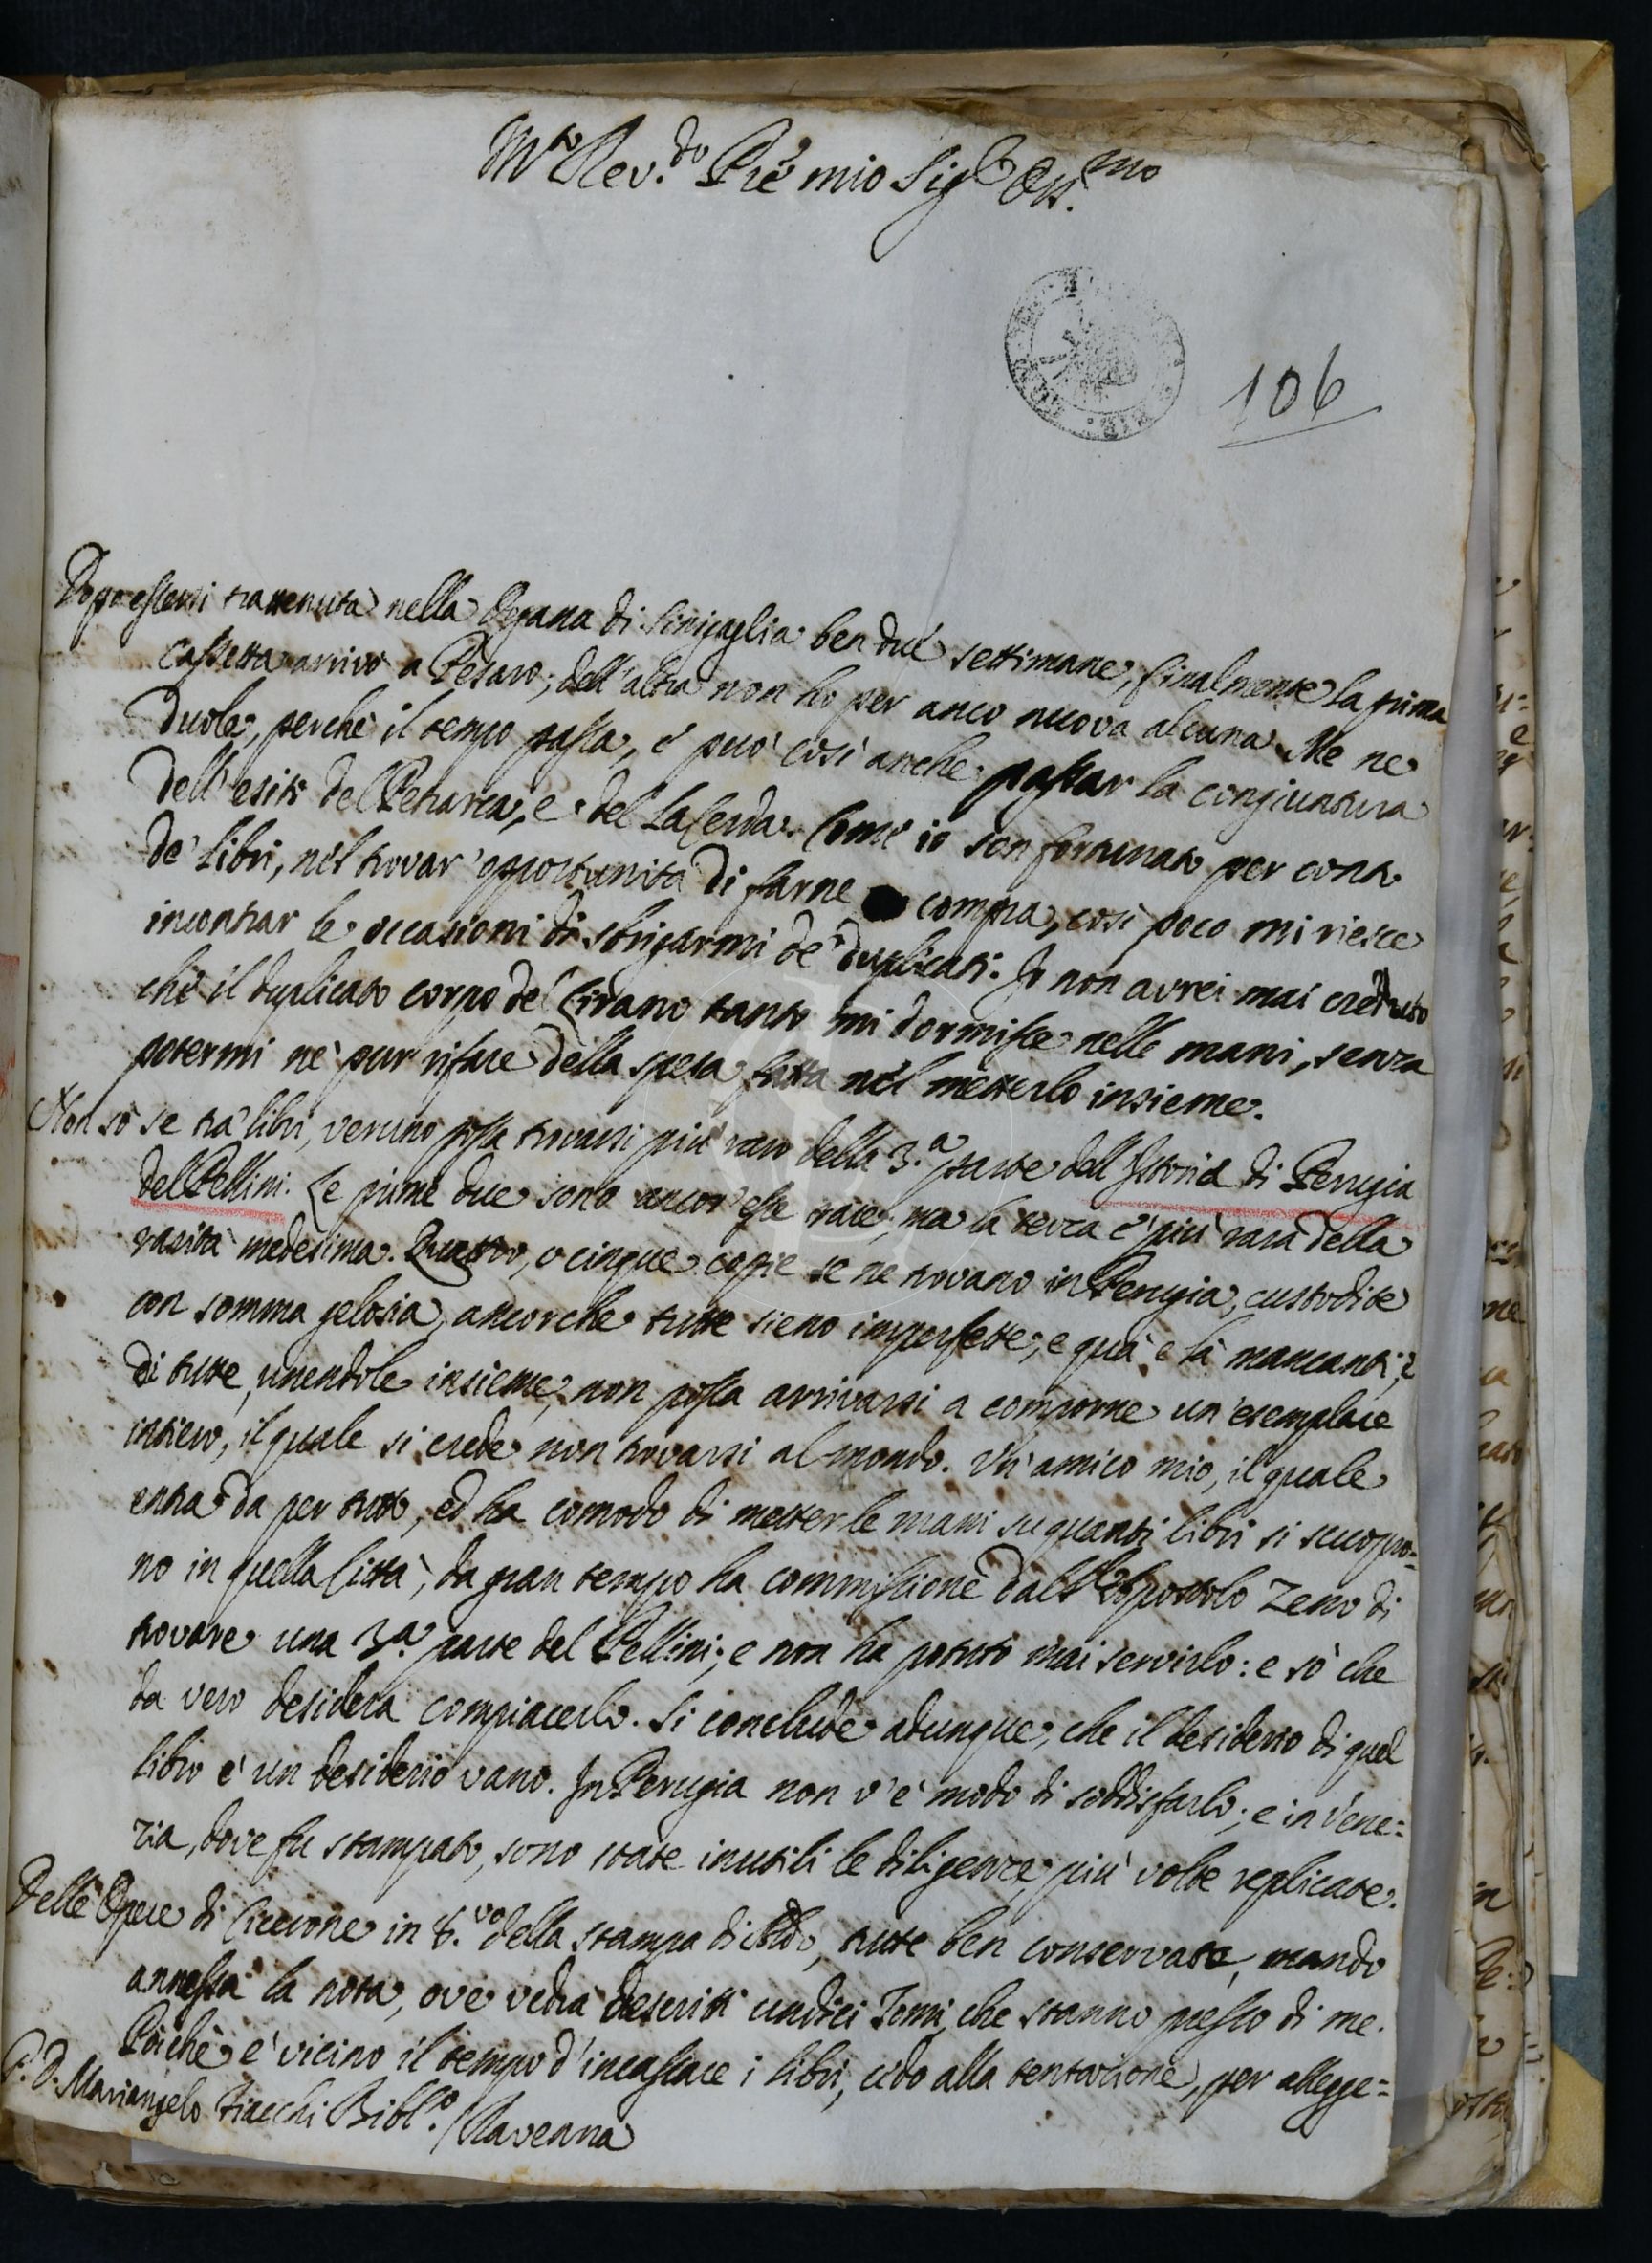 M.to Rev.do P're mio Sig.r Oss.mo
106
Dopo essersi trattenuta nella Dogana di Sinigaglia ben due settimane, finalmente la prima
cassetta arrivò a Pesaro; dell'altra non ho per anco nuova alcuna. Me ne
duole, perchè il tempo passa, e può così anche passar la congiuntura
dell'esito del Petrarca, e del La Cerda. Come io son fortunato per conto
de' libri, nel trovar opportunità di farne compra, così poco mi riesce
incontrar le occasioni di sbrigarmi de' duplicati. Io non avrei mai creduto
che il duplicato corpo del Cirano tanto mi dormisse nelle mani, senza
potermi nè pur rifare della spesa fatta nel metterlo insieme.
Non sò se trà libri, veruno possa trovarsi più raro della 3.a parte dell'Istoria di Perugia
del Pellini. Le prime due sono ancor esse rare, ma la terza è più rara della
rarità medesima. Quattro, o cinque copie se ne trovano in Perugia, custodite
con somma gelosia, ancorche tutte sieno imperfette, e quà e là mancanti; e
di tutte, unendole insieme, non possa arrivarsi a comporne un'esemplare
intiero, il quale si crede non trovarsi al mondo. Un'amico mio, il quale
entra da per tutto, ed ha comodo di metter le mani su quanti libri si scuopro=
no in quella Città, da gran tempo ha commissione dal Apostolo Zeno di
trovare una 3.a parte del Pellini; e non ha potuto mai servirlo: e sò che
da vero desidera compiacerlo. Si conclude adunque, che il desiderio di quel
libro è un desiderio vano. In Perugia non v'è modo di soddisfarlo; e in Vene=
zia, dove fu stampato, sono state inutili le diligenze più volte replicate.
Delle Opere di Cicerone in 8.vo della stampa di Aldo, tutte ben conservate, mando
annessa la nota, ove vedrà descritti undici Tomi, che stanno presso di me.
Poichè è vicino il tempo d'incassare i libri, cedo alla tentazione, per allegge=
P. D. Mariangelo Fiacchi Bibl.o / Ravenna